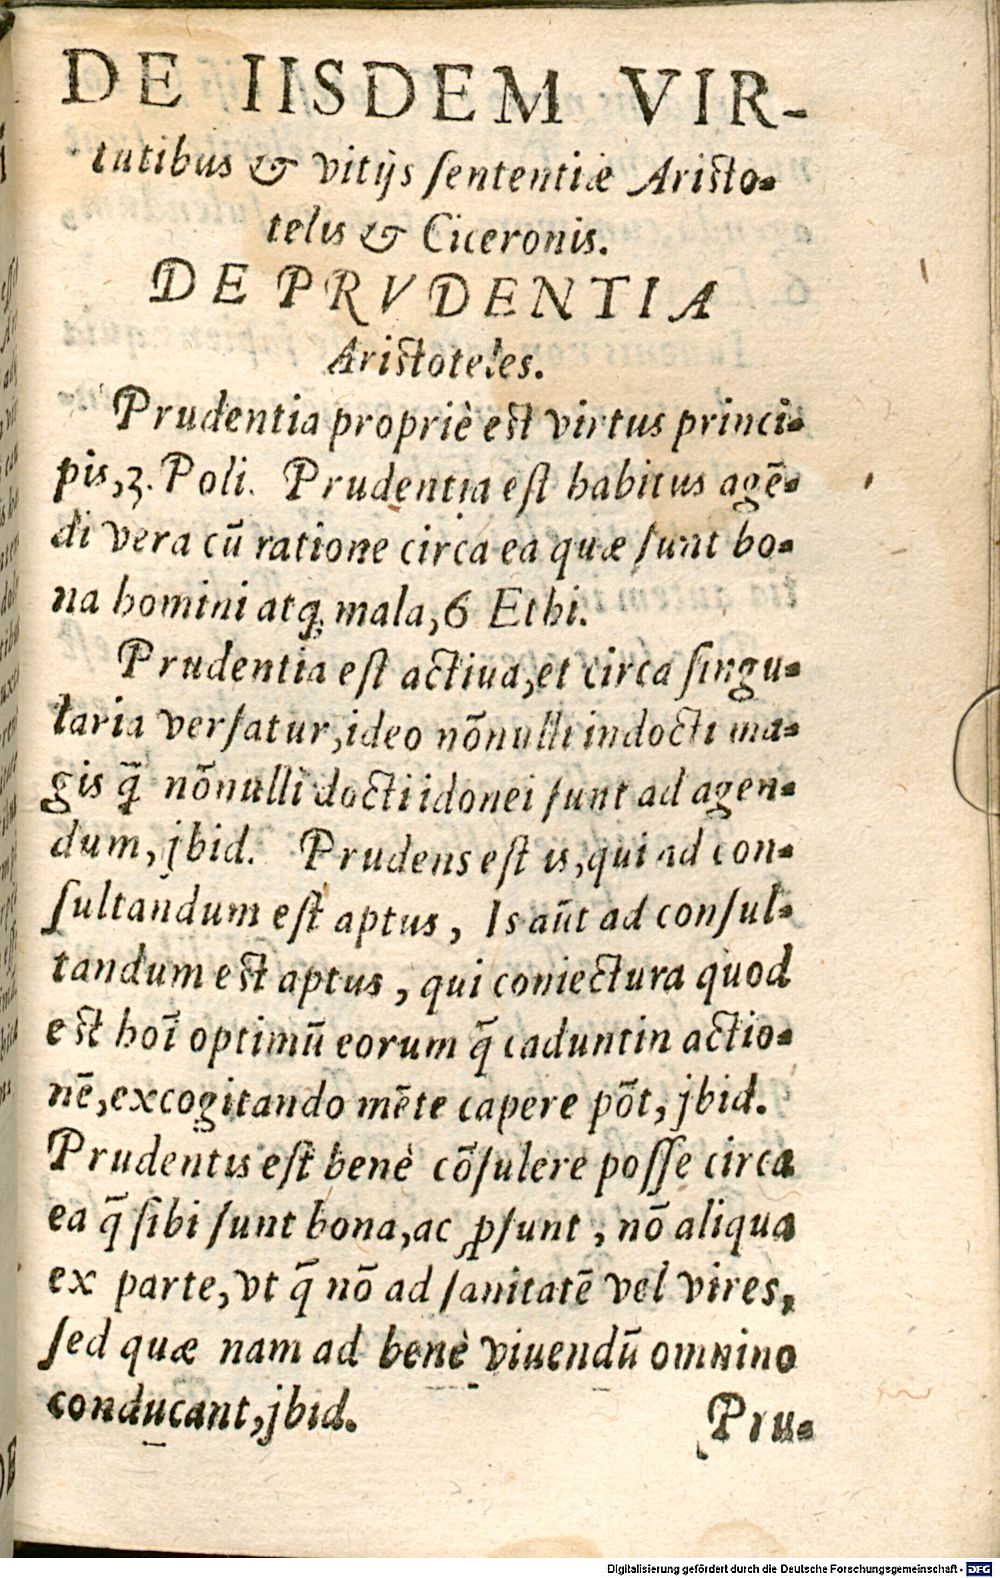 DE IISDEM VIR-
tutibus & vitijs ſententiæ Aristo-
telis & Ciceronis.
DE PRVDENTIA
Aristoteles.
Prudentia propriè est virtus princi-
pis, 3. Poli. Prudentia eſt habitus agē-
di vera cū ratione circa ea quæ ſunt bo-
na homini atq; mala, 6 Ethi.
Prudentia eſt actiua, et circa ſingu-
laria verſatur, ideo nōnulli indocti ma-
gis q̄ nōnulli docti idonei ſunt ad agen-
dum, jbid. Prudens eſt is, qui ad con-
ſultandum eſt aptus, Is aūt ad conſul-
tandum est aptus, qui coniectura quod
est hoī optimū eorum q̄ cadunt in actio-
nē, excogitando mēte capere pōt, jbid.
Prudentis eſt benè cōſulere poſſe circa
ea q̄ ſibi ſunt bona, ac ꝓſunt, nō aliqua
ex parte, vt q̄ nō ad ſanitatē vel vires,
ſed quæ nam ad benè viuendū omnino
conducant, jbid.
Pru-
Digitalisierung gefördert durch die Deutsche Forschungsgemeinschaft - DFG